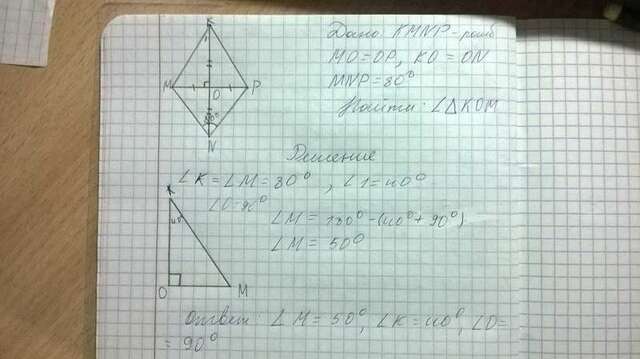 K
1
M
O
P
80°
N
Дано KMNP-ромб
MO=OP, KO=ON
MNP=80°
Найти: ∠△KOM
Решение
∠K=∠M=80°, ∠1=40°
∠O=90°
∠M=180°-(40°+90°)
∠M=50°
K
40°
O
M
Ответ: ∠M=50°, ∠K=40°, ∠O=
=90°